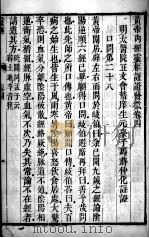 黃帝內經靈樞註證發微卷之
明太醫院正文會稽庠生玄臺子馬蒔仲化註證
口問第二十八
黃帝閒居辟左右而問於岐伯曰余已聞九鍼之經論陰
陽逆順六經已畢願得口問岐伯避席再拜曰善乎哉問
也此先師之所口傳也黃帝曰願聞口傳岐伯答曰夫百
病之始生也皆生於風雨寒暑陰陽喜怒飲食居處大驚
卒恐則血氣分離陰陽破敗經絡厥絕脈道不通陰陽相
逆衛氣稽留經脈虛空血氣不次乃失其常論不在經者
請道其方